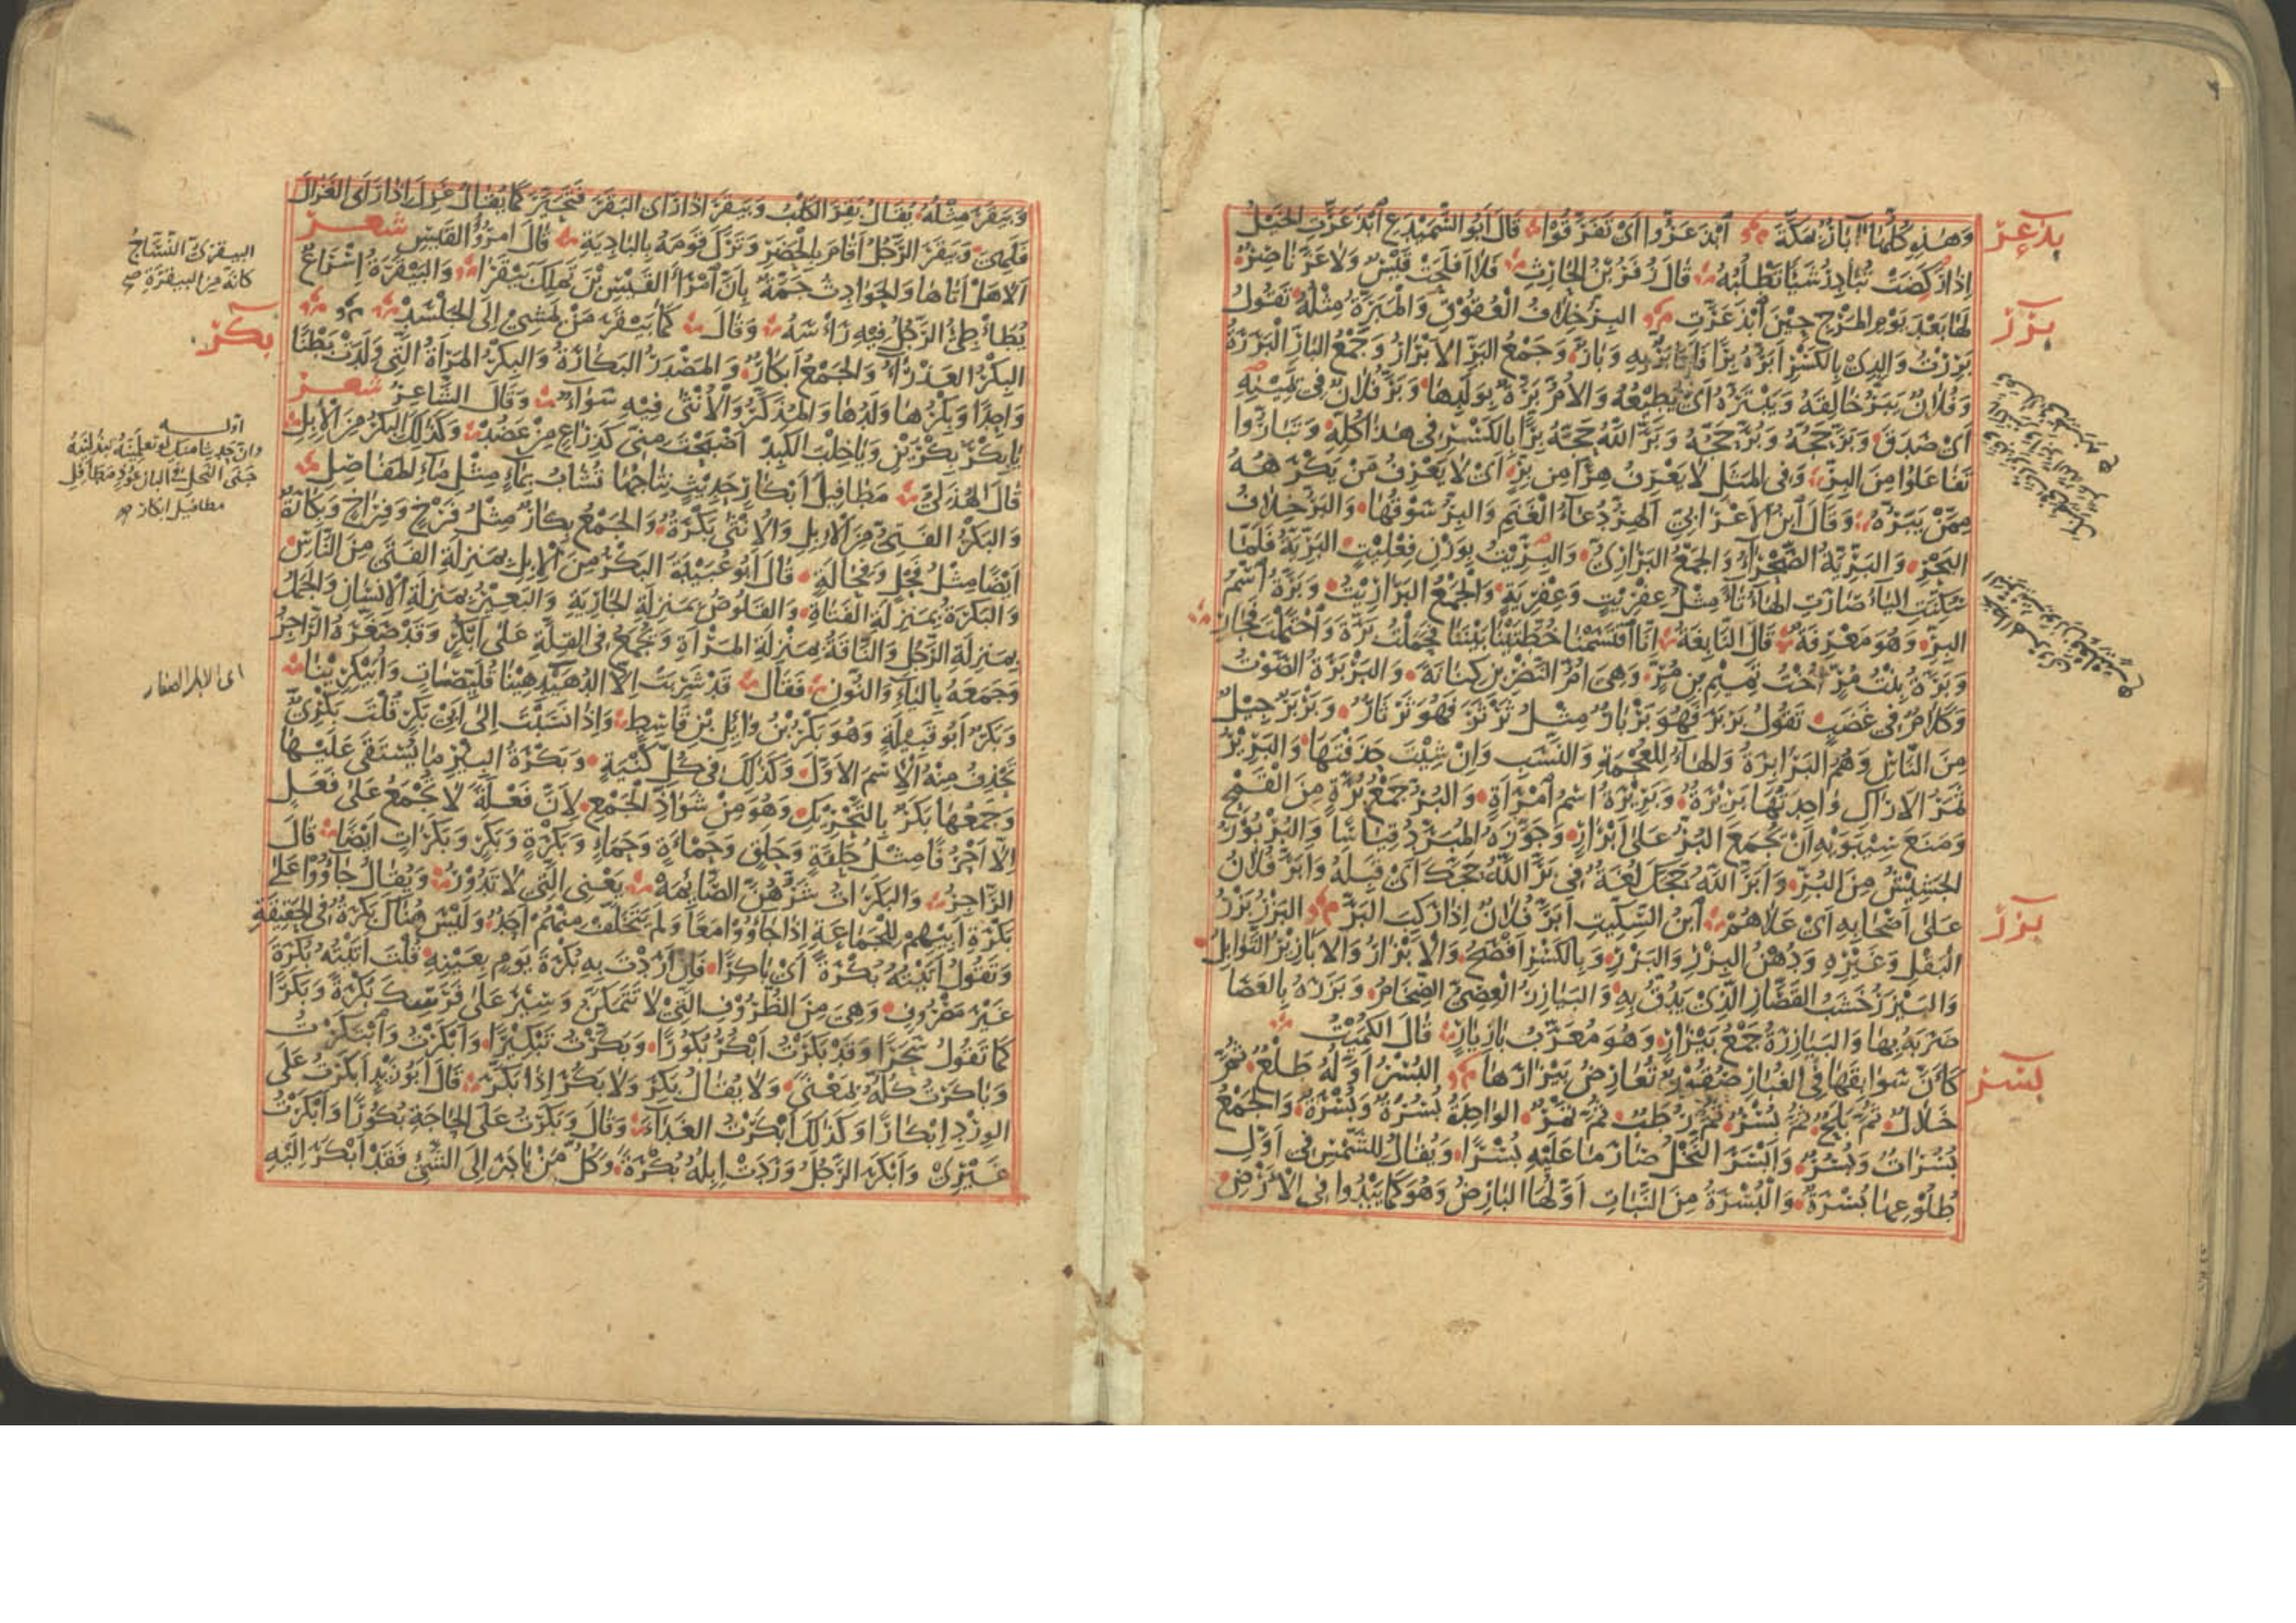 وهذه كلها آبار بمكة ابذعروا اى تفرقوا قال ابو السميدع ابذعرت الخيل
بذعر
اذا ركضت تبادر شيئا تطلبه قال زفر بن الحارث فلا افلحت قيس ولا عز ناصر
لها بعد يوم المرج حين ابذعرت البر خلاف العقوق والمبرة مثله تقول
برر
بررت والدى بالكسر ابره برا فانا بر به وبار وجمع البر الابرار وجمع البار البررة
وفلان يبر خالقه ويتبرره اى يطيعه والام برة بولدها وبر فلان فى يمينه
اى صدق وبر حجه وبر حجه وبر الله حجه برا بالكسر فى هذا كله وتباروا
تفاعلوا من البر وفى المثل لا يعرف هرا من بر اى لا يعرف من يكرهه
ممن يبره وقال ابن الاعرابى الهر دعاء الغنم والبر سوقها والبر خلاف
البحر والبرية الصحراء والجمع البرارى والبريت بوزن فعليت البرية فلما
سكنت الياء صارت الهاء تاء مثل عفريت وعفرية والجمع البراريت وبرة اسم
البر وهو معرفة قال النابغة انا اقتسمنا خطتينا بيننا فحملت برة واحتملت فجار
وبرة بنت مر اخت تميم بن مر وهى ام النضر بن كنانة والبربرة الصوت
وكلام فى غضب تقول بربر فهو بربار مثل ثرثر فهو ثرثار وبربر جيل
من الناس وهم البرابرة والهاء للعجمة والنسب وان شئت حذفتها والبرير
ثمر الاراك واحدتها بريرة وبريرة اسم امرأة والبر جمع برة من القمح
ومنع سيبويه ان يجمع البر على ابرار وجوزه المبرد قياسا والبربور
الجشيش من البر وابر الله حجك لغة فى بر الله حجك اى قبله وابر فلان
على اصحابه اى علاهم ابن السكيت ابر فلان اذا ركب البر البزر بزر
بزر
البقل وغيره ودهن البزر والبزر وبالكسر افصح والابزار والابازير التوابل
والبيزر خشب القصار الذى يدق به والبيازر العصى الضخام وبزره بالعصا
ضربه بها والبيازرة جمع بيزار وهو معرب بازيار قال الكميت
كأن سوابقها فى الغبار صقور تعارض بيزارها البسر اوله طلع ثم
بسر
خلال ثم بلح ثم بسر ثم رطب ثم تمر الواحدة بسرة وبسرة والجمع
بسرات وبسر وابسر النخل صار ما عليه بسرا ويقال للشمس فى اول
طلوعها بسرة والبسرة من النبات اولها البارض وهو كما يبدوا فى الارض
وبيقر مثله يقال بقر الكلب وبيقر اذا رأى البقر فتحير كما يقال غزل اذا رأى الغزال
فلهى وبيقر الرجل اقام بالحضر وترك قومه بالبادية قال امرؤ القيس شعر
الا هل اتاها والحوادث جمة بان امرأ القيس بن تملك بيقرا والبيقرة اسراع
البيقرى النساج
كانه من البيقرة صح
يطأطئ الرجل فيه رأسه وقال كما بيقر من يمشى الى الجلسد
بكر
البكر العذراء والجمع ابكار والمصدر البكارة والبكر المرأة التى ولدت بطنا
واحدا وبكرها ولدها والمذكر والانثى فيه سواء وقال الشاعر شعر
يا بكر بكرين ويا خلب الكبد اصبحت منى كذراع من عضد وكذلك البكر من الابل
قال الهذلى مطافيل ابكار حديث نتاجها تشاب بماء مثل ماء المفاصل
اوله
وان حديثا منك لو تعلمينه
جنى النحل فى البان عوذ مطافل
مطافيل ابكار
والبكر الفتى من الابل والانثى بكرة والجمع بكار مثل فرخ وفراخ وبكارة
ايضا مثل فحل وفحالة قال ابو عبيدة البكر من الابل بمنزلة الفتى من الناس
والبكرة بمنزلة الفتاة والقلوص بمنزلة الجارية والبعير بمنزلة الانسان والجمل
بمنزلة الرجل والناقة بمنزلة المرأة ويجمع فى القلة على ابكر وقد صغره الراجز
وجمعه بالياء والنون فقال قد شربت الا الدهيدهينا قليصات وابيكرينا
اى الابل الصغار
وبكر ابو قبيلة وهو بكر بن وائل بن قاسط واذا نسبت الى ابى بكر قلت بكرى
تحذف منه الاسم الاول وكذلك فى كل كنية وبكرة البئر ما يستقى عليها
وجمعها بكر بالتحريك وهو من شواذ الجمع لان فعلة لا تجمع على فعل
الا احرفا مثل حلقة وحلق وحمأة وحماء وبكرة وبكر وبكرات ايضا قال
الراجز والبكرات شرهن الصائمه يعنى التى لا تدور ويقال جاؤوا على
بكرة ابيهم للجماعة اذا جاؤوا معا ولم يتخلف منهم احد وليس هناك بكرة فى الحقيقة
وتقول اتيته بكرة اى باكرا فان اردت به بكرة يوم بعينه قلت اتيته بكرة
غير مصروف وهى من الظروف التى لا تتمكن وسير على فرسك بكرة وبكرا
كما تقول سحرا وقد بكرت ابكر بكورا وبكرت تبكيرا وابكرت وابتكرت
وباكرت كله بمعنى ولا يقال بكر ولا بكر اذا بكر قال ابو زيد ابكرت على
الورد ابكارا وكذلك ابكرت الغداء وقال وبكرت على الحاجة بكورا وابكرت
غيرى وابكر الرجل وردت ابله بكرة وكل من بادر الى الشئ فقد ابكر اليه